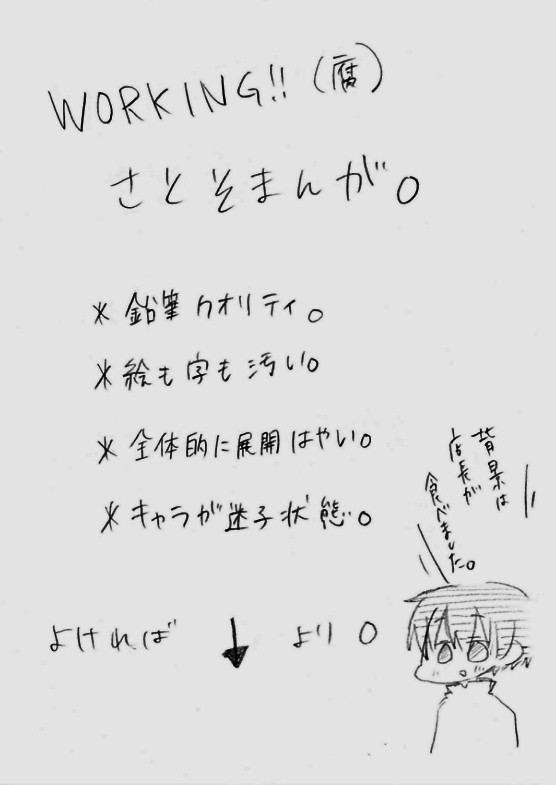 WORKING!!(腐)
さとそまんが。
*鉛筆クオリティ。
*絵も字も汚い。
*全体的に展開はやい。
*キャラが迷子状態。
よければ↓より。
背景は
店長が
食べました。